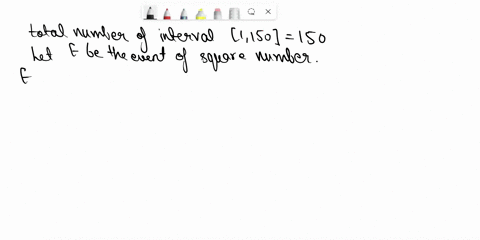 total number of interval [1,150] = 150
Let E be the event of square number.
E